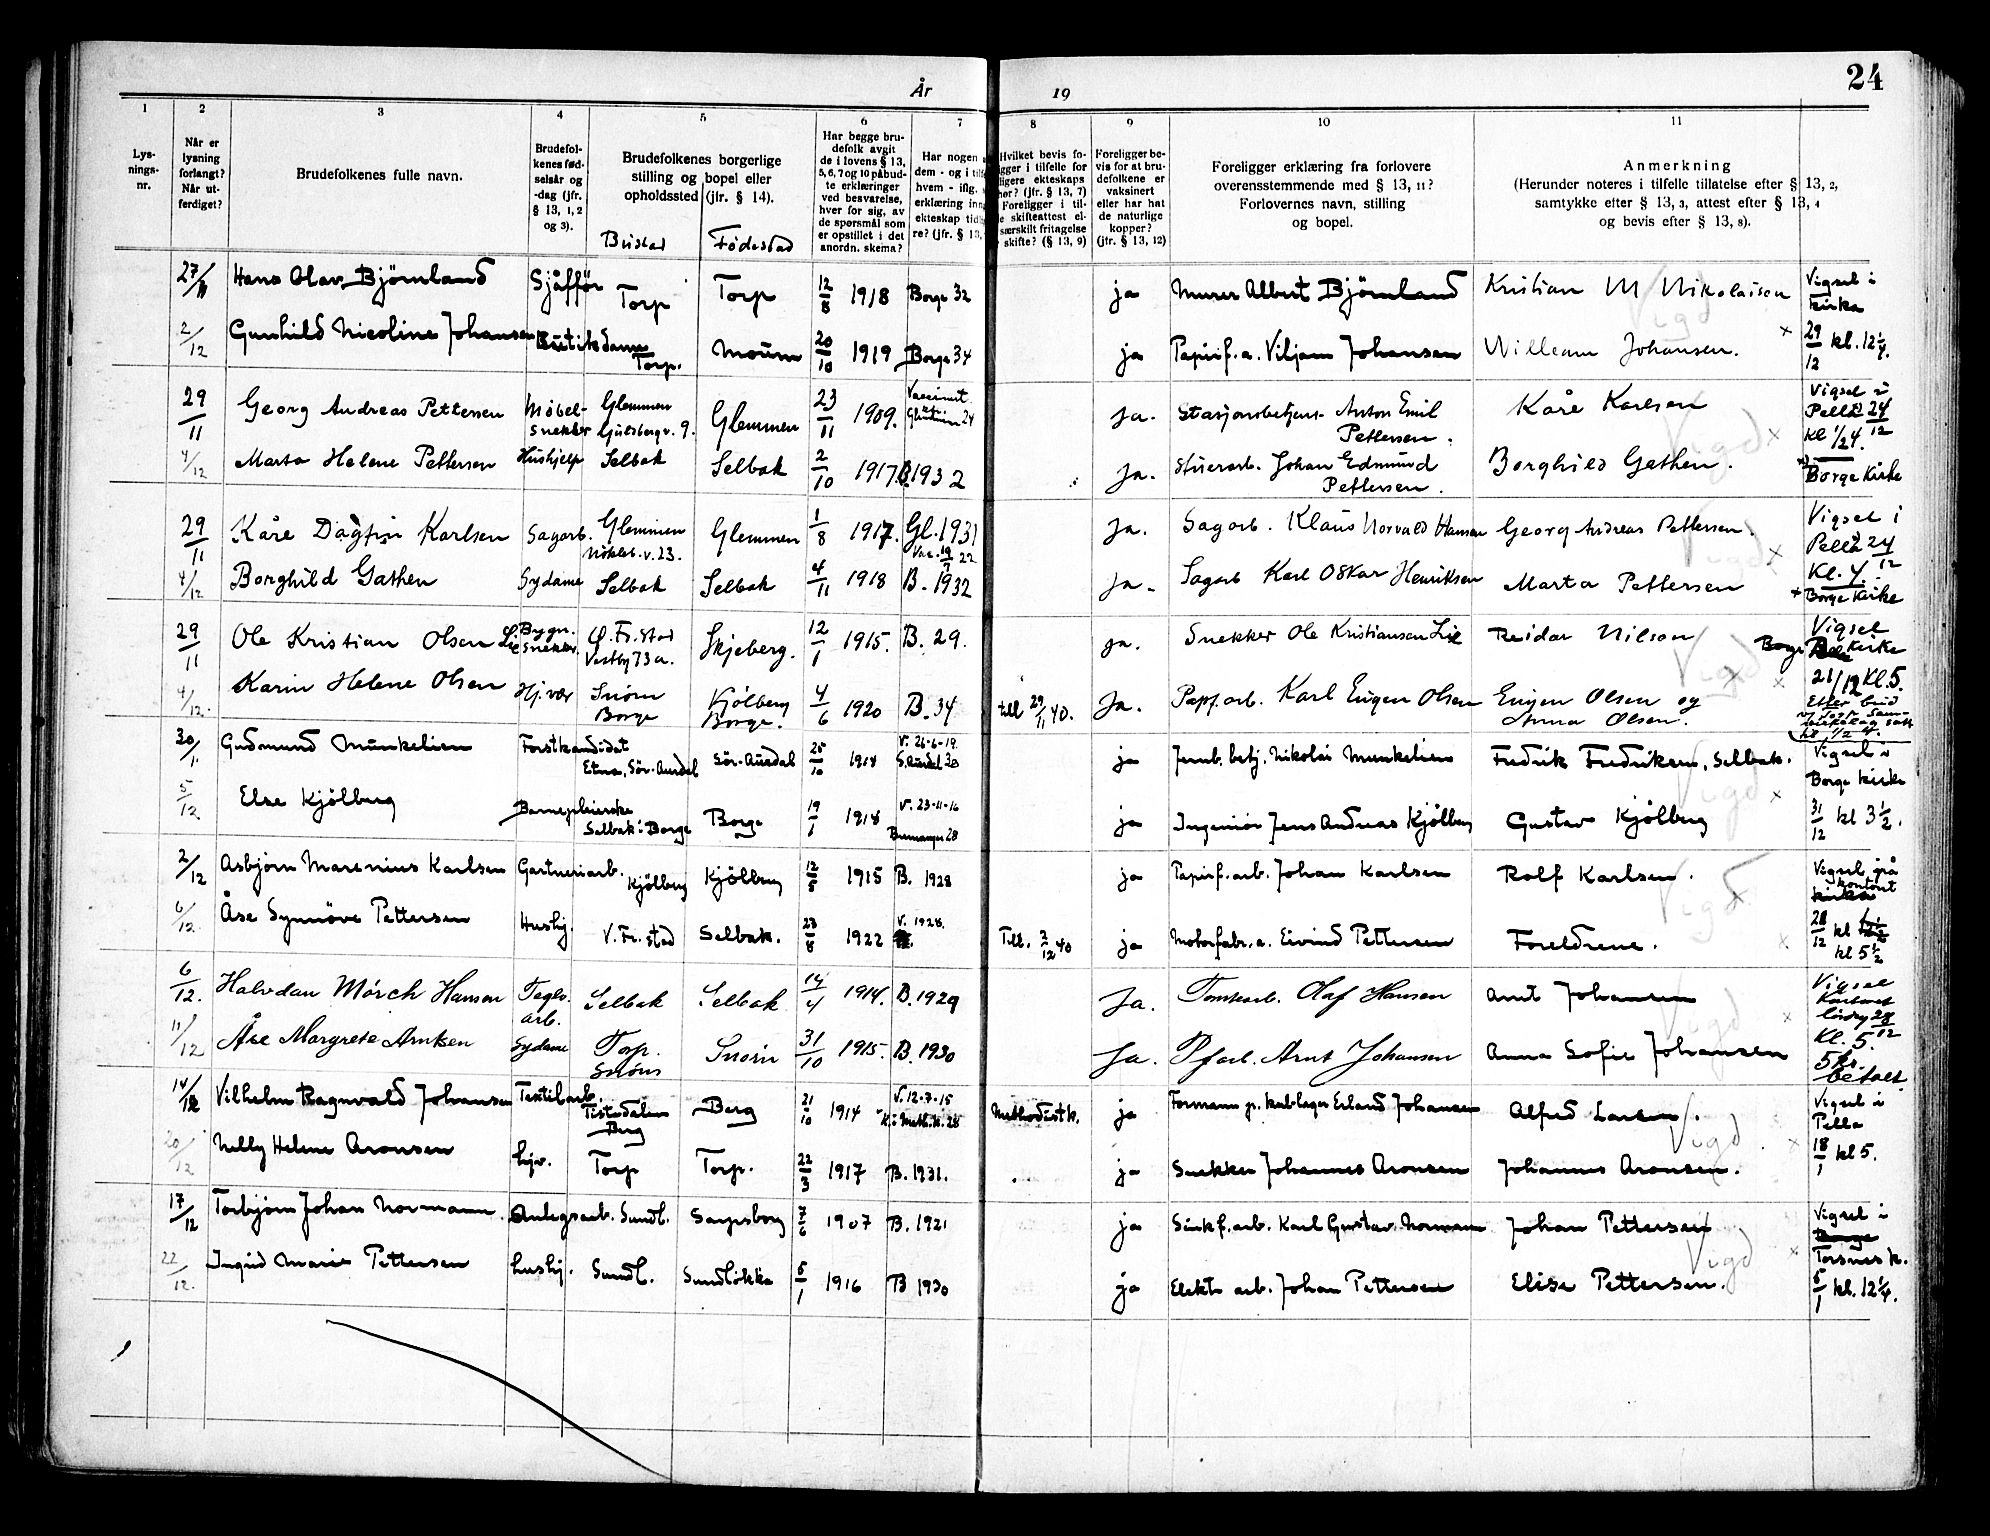 År 19
24
1 2 3 4 5 6 7 8 9 10 11
Lys-
nings-
nr.
Når er
lysning
forlangt?
Når ut-
ferdiget?
Brudefolkenes fulle navn.
Brudefol-
kenes fød-
selsår og
-dag (jfr.
§ 13, 1, 2
og 3).
Brudefolkenes borgerlige
stilling og bopel eller
opholdssted (jfr. § 14).
Bustad Födestad
Har begge bru-
defolk avgit
de i lovens § 13,
5, 6, 7 og 10 påbud-
te erklæringer
ved besvarelse,
hver for sig, av
de spørsmål som
er opstillet i det
anordn. skema?
Har nogen
dem - og i
hvem - iflg.
erklæring
ekteskap
re? (jfr. § 13,
Hvilket bevis fo-
ligger i tilfelle for
ekteskaps
(jfr. § 13, 7)
Foreligger i til-
skifteattest el-
særskilt fritagelse
skifte? (§ 13, 9)
Foreligger be-
vis for at bru-
defolkene er
vaksinert
eller har hat
de naturlige
kopper?
(jfr. § 13, 12)
Foreligger erklæring fra forlovere
overensstemmende med § 13, 11?
Forlovernes navn, stilling
og bopel.
Anmerkning
(Herunder noteres i tilfelle tillatelse efter § 13, 2,
samtykke efter § 13, 3, attest efter § 13, 4
og bevis efter § 13, 8).
27/11 Hans Olav Björnland Sjåfför Torp Torp 12/8 1918 Borge 32 ja Murer Albert Björnland Kristian M Nikolaison Vigsel i
kirka
2/12 Gunhild Nicoline Johansen Butikdame Torp. Moum 20/10 1919 Borge 34 ja Papirf.a. Viljam Johansen William Johansen. Vigd × 29/12 kl. 12 1/4.
29/11 Georg Andreas Pettersen Møbel-
snekker Glemmen
Gulsbergv. 9. Glemmen 23/11 1909. 24 ja. Stasjonsbetjent Anton Emil
Pettersen. Kåre Karlsen Vigd × Vigsel i
Pella 24/12
kl 1/2 4.
4/12 Marta Helene Pettersen Hushjelp Selbak Selbak 2/10 1917 B. 1932 Ja. Johan Edmund
Pettersen. Borghild Gathen. Borge kirke
29/11 Kåre Dagfin Karlsen Sagarb. Glemmen
v. 23. Glemmen 1/8 1917. Gl. 1931
Ja. Sagarb. Klaus Norvald Hansen Georg Andreas Pettersen. Vigd × Vigsel i
Pella 24/12
Kl. 4.
4/12 Borghild Gathen Sydame Selbak Selbak 4/11 1918 B. 1932 Ja. Sagarb Karl Oskar Henriksen Marta Pettersen × Borge kirke
29/11 Ole Kristian Olsen Lie Bygn.
snekker. Ø. Fr.stad
Vestby 73a. Skjeberg. 12/1 1915. B. 29. ja. Snekker Ole Kristiansen Lie Reidar Nilson Vigsel
Borge kirke
4/12. Karin Helene Olsen Hj.vær Snörn
Borge Kjölberg
Borge. 4/6 1920 B. 34 till 29/11 40. Ja. Papf.arb. Karl Eugen Olsen Eugen Olsen og
Anna Olsen. Vigd × 21/12 Kl. 5.
30/1. Gudmund Munkelien Forstkandidat
Etna, Sör-Aurdal Sör-Aurdal 25/10 1914 V. 26-6-19.
S.Aurdal 30 ja Jernb. betj. Nikolai Munkelien Fredrik Fredriksen, Selbak. Vigsel i
Borge kirke
5/12 Else Kjölberg Barnepleierske
Selbak i Borge Borge 19/1 1914 V. 23-11-16
28 ja Ingeniör Jens Andreas Kjölberg Gustav Kjölberg Vigd × 31/12 kl 3 1/2.
2/12 Asbjörn Marenius Karlsen Gartneriarb. Kjölberg Kjölberg 12/5 1915 B. 1928 ja Papirf.arb. Johan Karlsen Rolf Karlsen. Vigd × Vigsel på
kontoret
kirka
6/12 Åse Synnöve Pettersen Hushj. V. Fr.stad Selbak. 23/8 1922 V. 1928. Till. 2/12 40 ja Motorfabr.a. Eivind Pettersen Foreldrene. 28/12 kl
kl 5 1/2
6/12. Halvdan Mörch Hansen Teglv.
arb. Selbak Selbak 14/4 1914. B. 1929 Ja. Tomtearb. Olaf Hansen Arnt Johansen Vigd × Vigsel
Kontoret
lördag 28/12
Kl. 5.
11/12 Åse Margrete Arntsen Sydame Torp.
Snörn Snörn 31/10 1915. B. 1930 Ja. Pfarb. Arnt Johansen Anna Sofie Johansen 5 kr.
betalt.
14/12 Vilhelm Ragnvald Johansen Textilarb. Tistedalen
Berg Berg 21/10 1914 V. 12-7-15
K. i Meth.k. 28 Methodistk. ja Formann p. kablager Erland Johansen Alfred Larsen. Vigd × Vigsel i
Pella
20/12 Nelly Helene Aronsen hjv. Torp Torp. 22/3 1917 B. 1931. ja Snekker Johannes Aronsen Johannes Aronsen. 18/1 kl 5.
17/12 Torbjörn Johan Normann. Anlegsarb. Sundl. Sarpsborg 7/6 1907 B. 1921 ja Sinkf.arb. Karl Gustav Normann Johan Pettersen Vigd × Vigsel i
Borge
Torsnes k.
22/12. Ingrid Marie Pettersen hushj. Sundl. Sundlökka 5/1 1916 B 1930 ja Elektr arb. Johan Pettersen Elise Pettersen. 5/1 kl. 12 1/4.